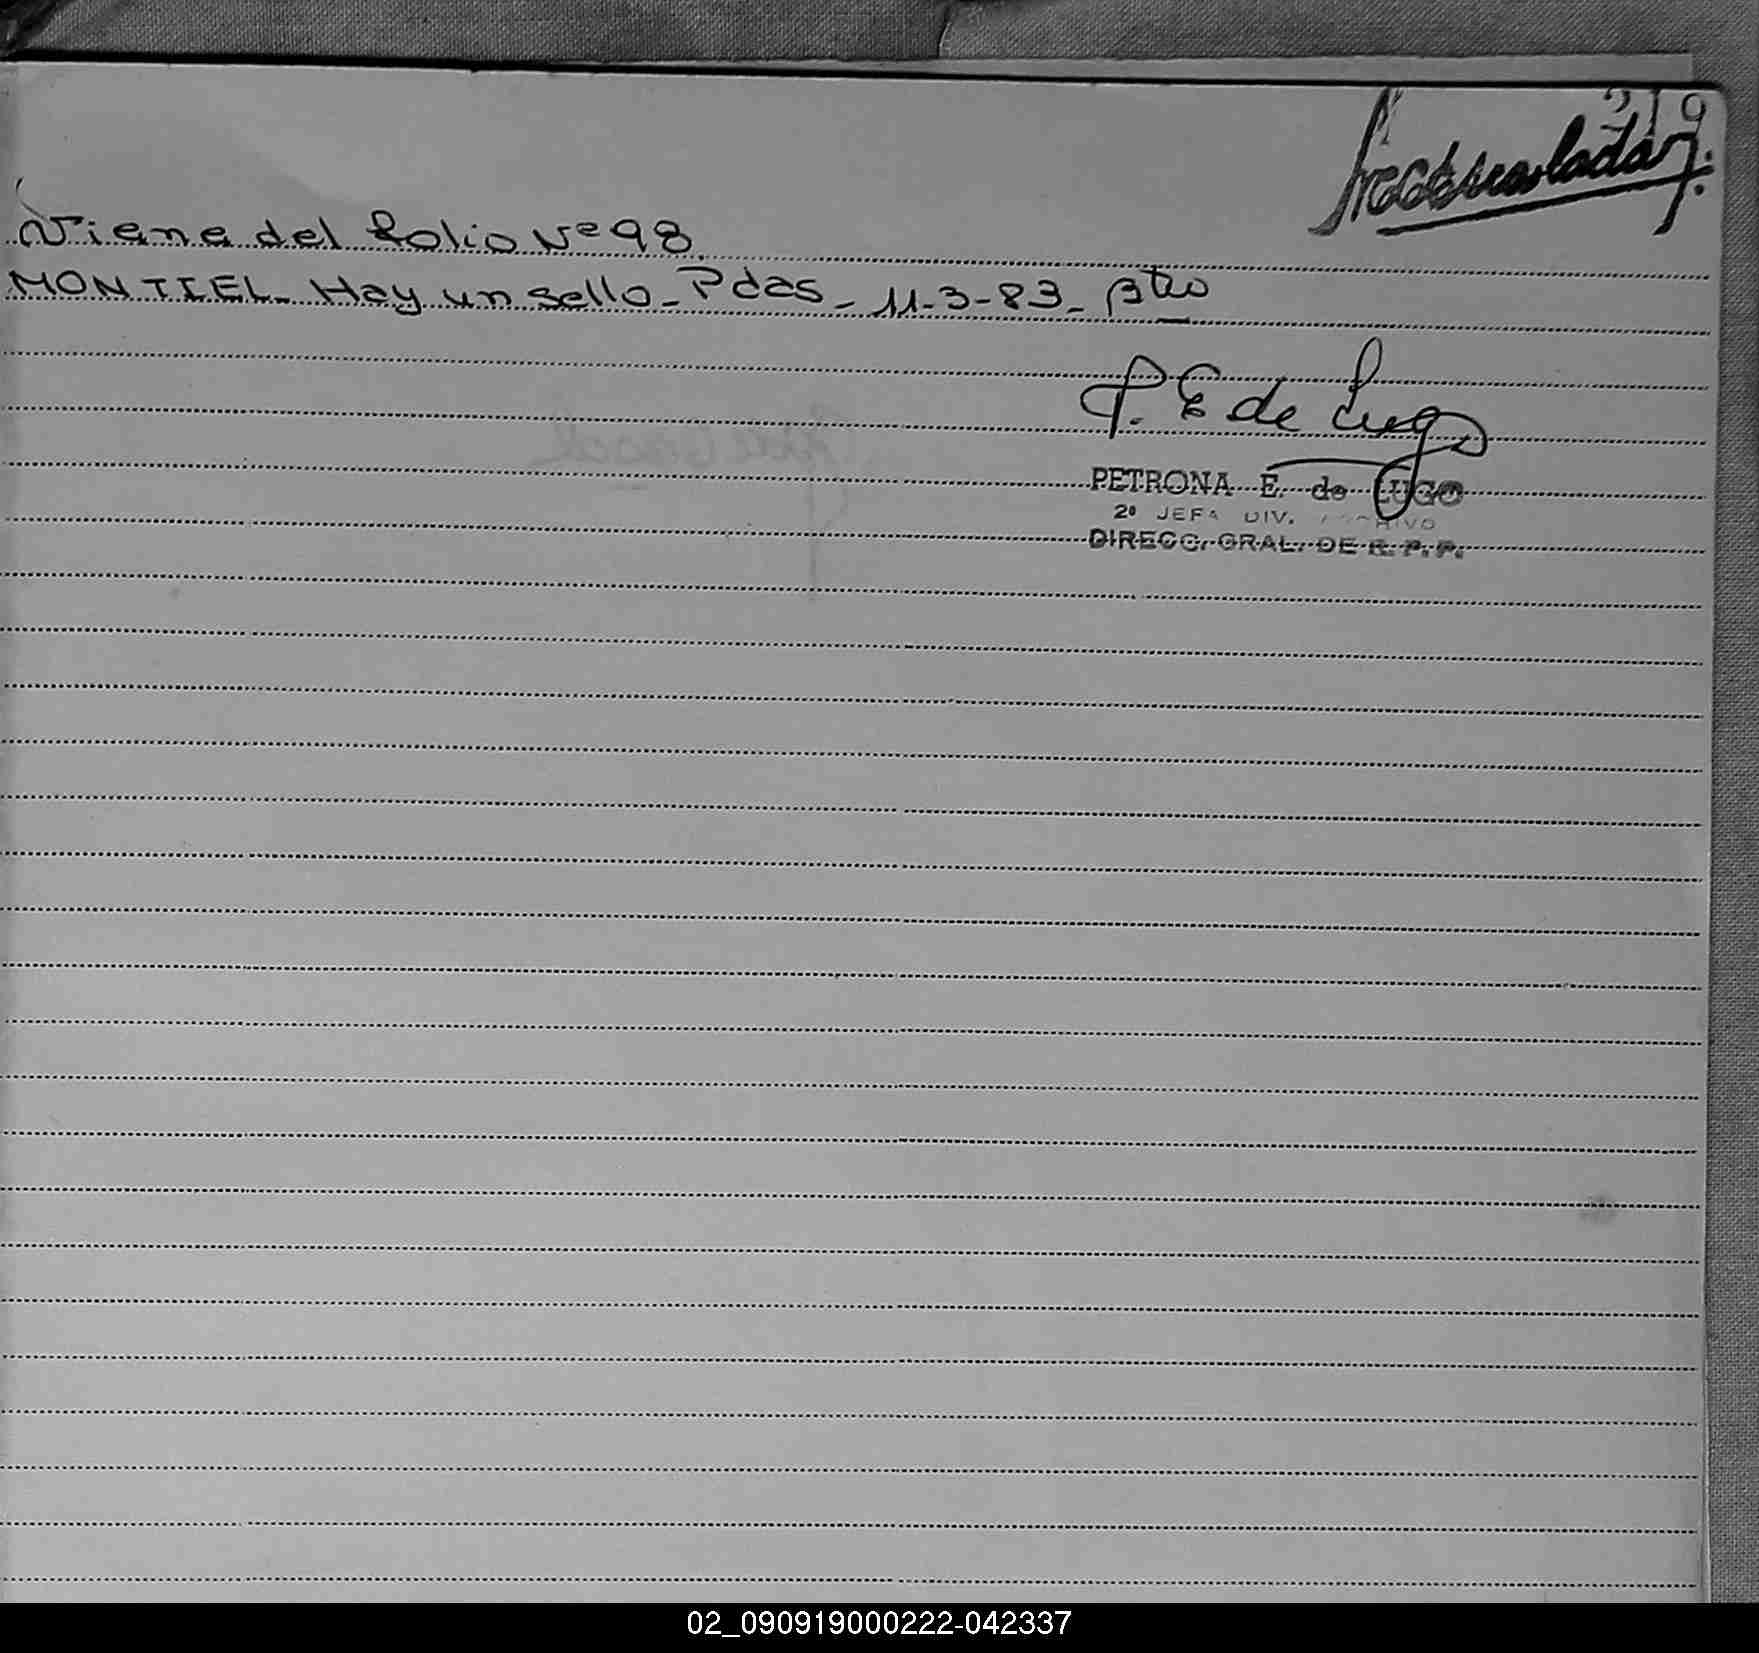 219
Viene del folio Nº 98.
MONTIEL. Hay un sello - Pdas - 11-3-83 - Btro
P. E de Lugo
PETRONA E. de LUGO
2º JEFA DIV. ARCHIVO
DIRECC. GRAL. DE R. P. P.
02_090919000222-042337